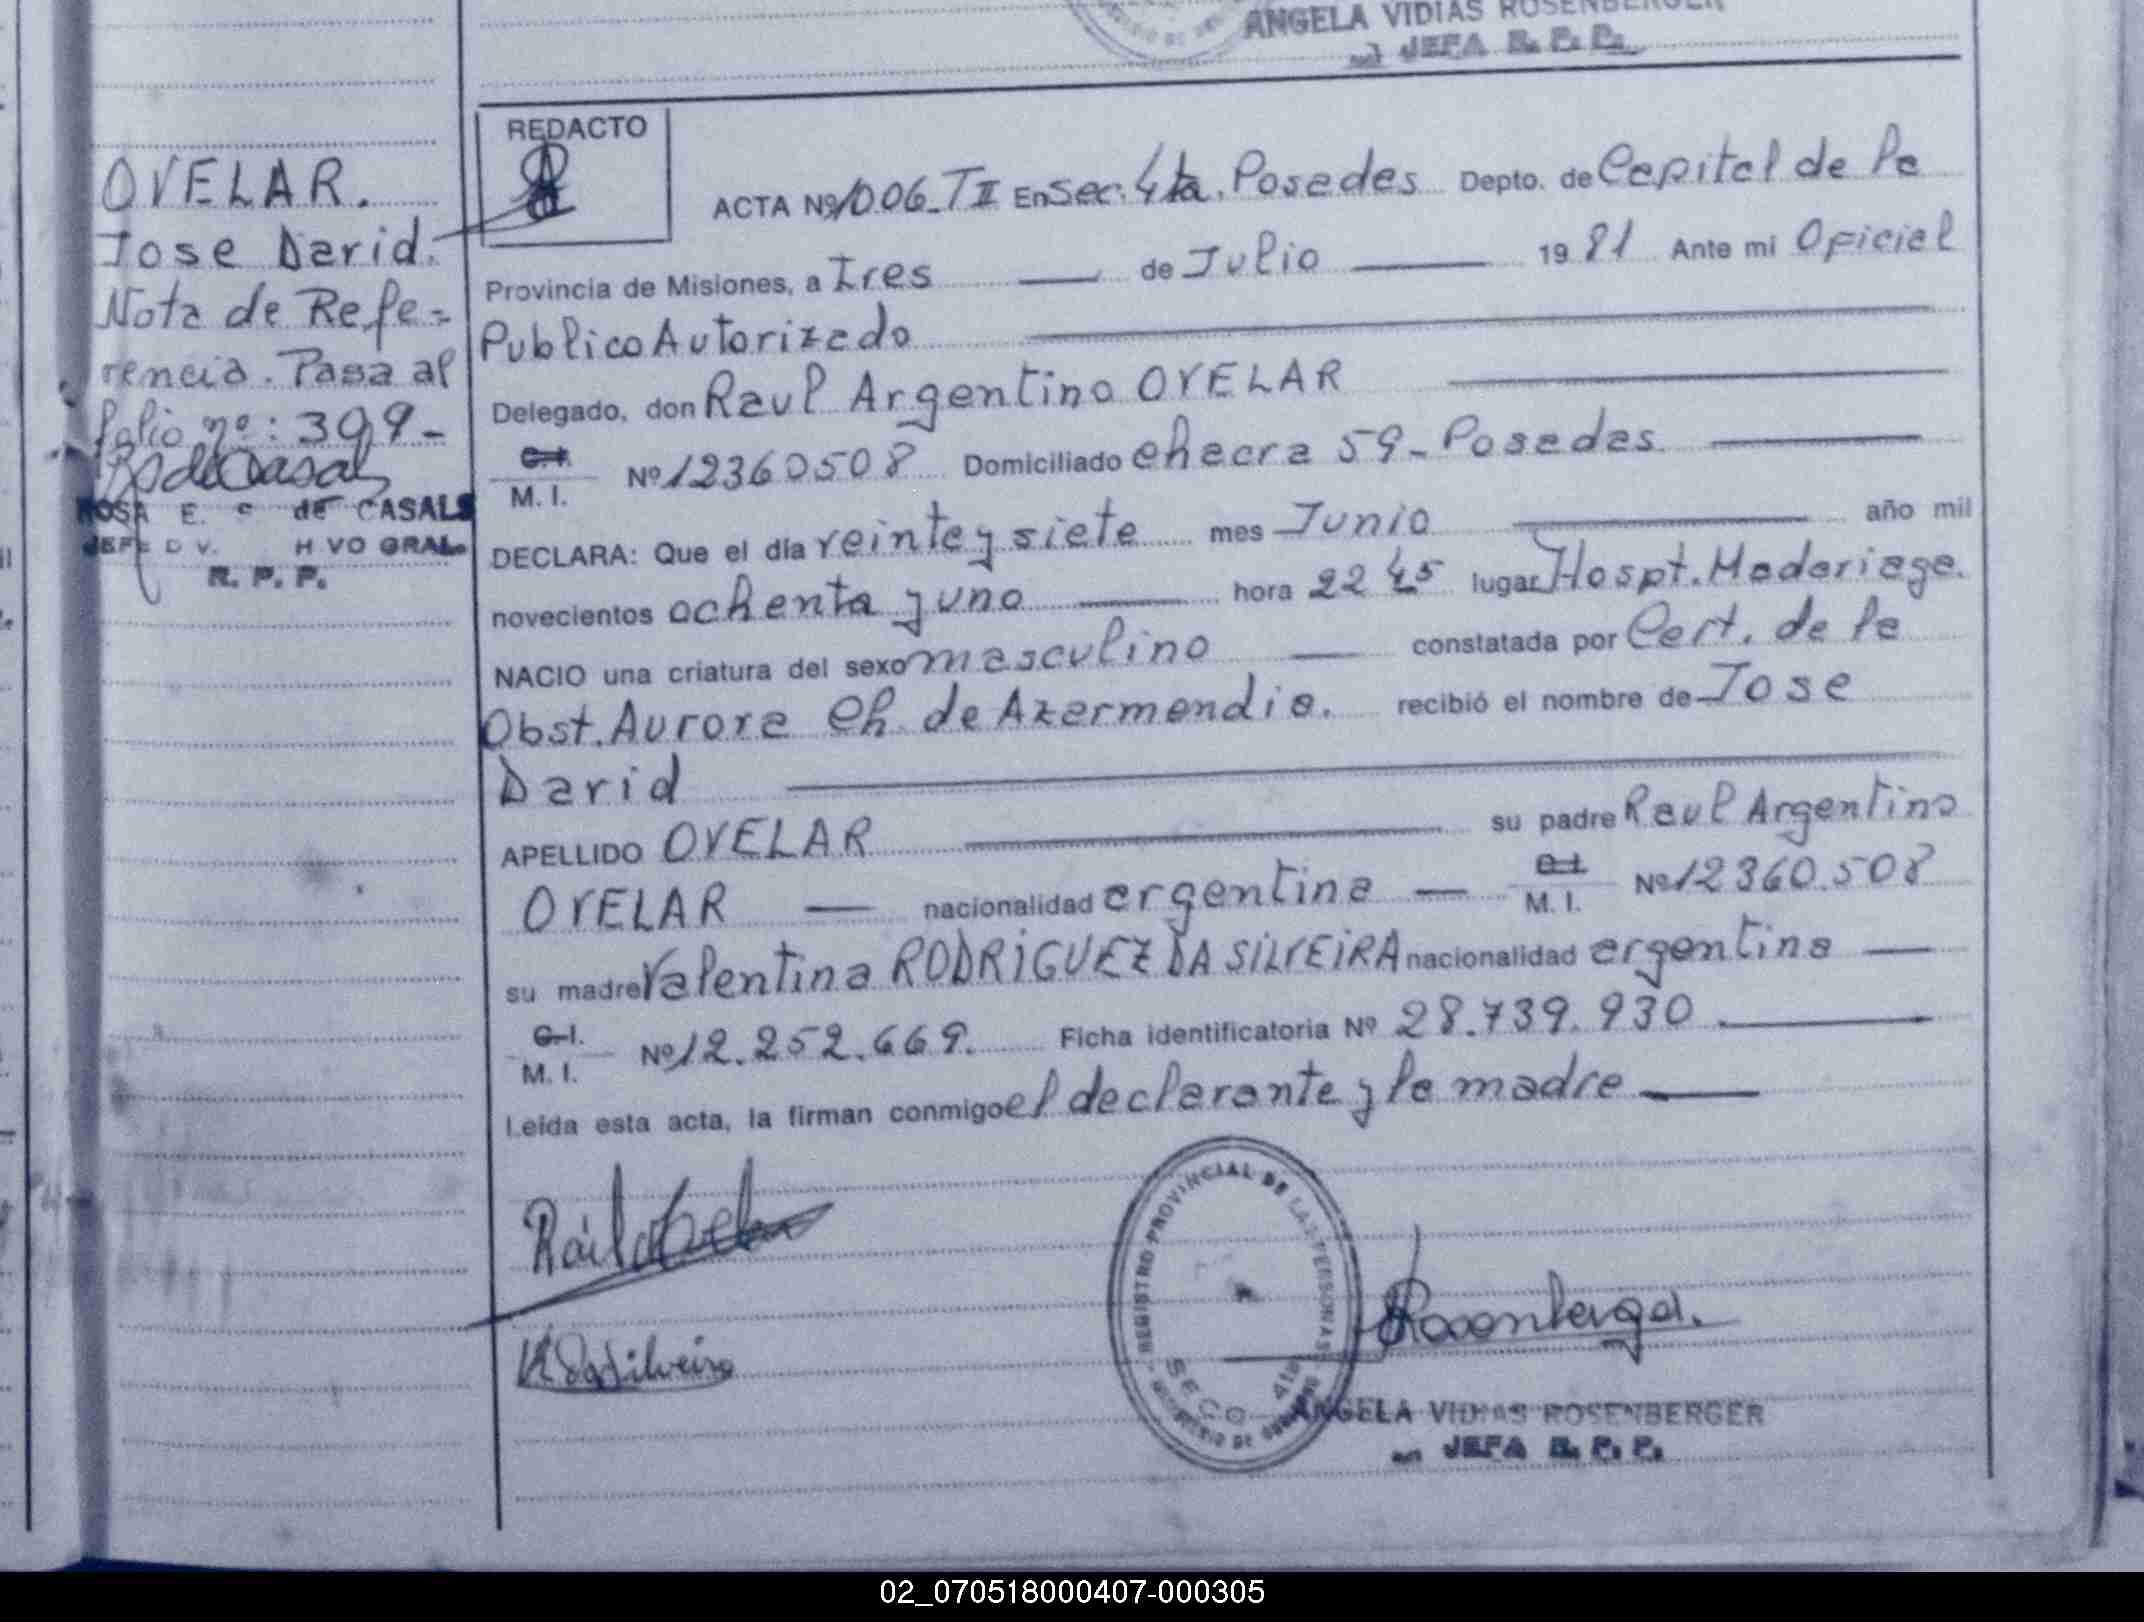 ANGELA VIDIAS ROSENBERGER
JEFA R. P. P.
OVELAR.
Jose David.
Nota de Refe=
rencia. Pasa al
folio nº: 399-
ROSA E. de CASALS
R. P. P.
REDACTO
ACTA Nº 1006-TII En Sec. 4ta. Posadas Depto. de Capital de la
Provincia de Misiones, a Tres de Julio 1981 Ante mi Oficial
Publico Autorizado
Delegado, don Raul Argentino OVELAR
C.I.
M. I. Nº 12360508 Domiciliado chacra 59- Posadas
DECLARA: Que el día veinte y siete mes Junio año mil
novecientos ochenta y uno hora 22 45 lugar Hospt. Madariaga.
NACIO una criatura del sexo masculino constatada por Cert. de la
Obst. Aurora Ch. de Azarmendia. recibió el nombre de Jose
David
APELLIDO OVELAR su padre Raul Argentino
OVELAR nacionalidad argentina C.I.
M. I. Nº 12360.508
su madre Valentina RODRIGUEZ DA SILVEIRA nacionalidad argentina
C.I.
M. I. Nº 12.252.669. Ficha identificatoria Nº 28.739.930
Leida esta acta, la firman conmigo el declarante y la madre
REGISTRO PROVINCIAL DE LAS PERSONAS
SECC. 4ta
Rosenberger.
ANGELA VIDIAS ROSENBERGER
JEFA R. P. P.
02_070518000407-000305